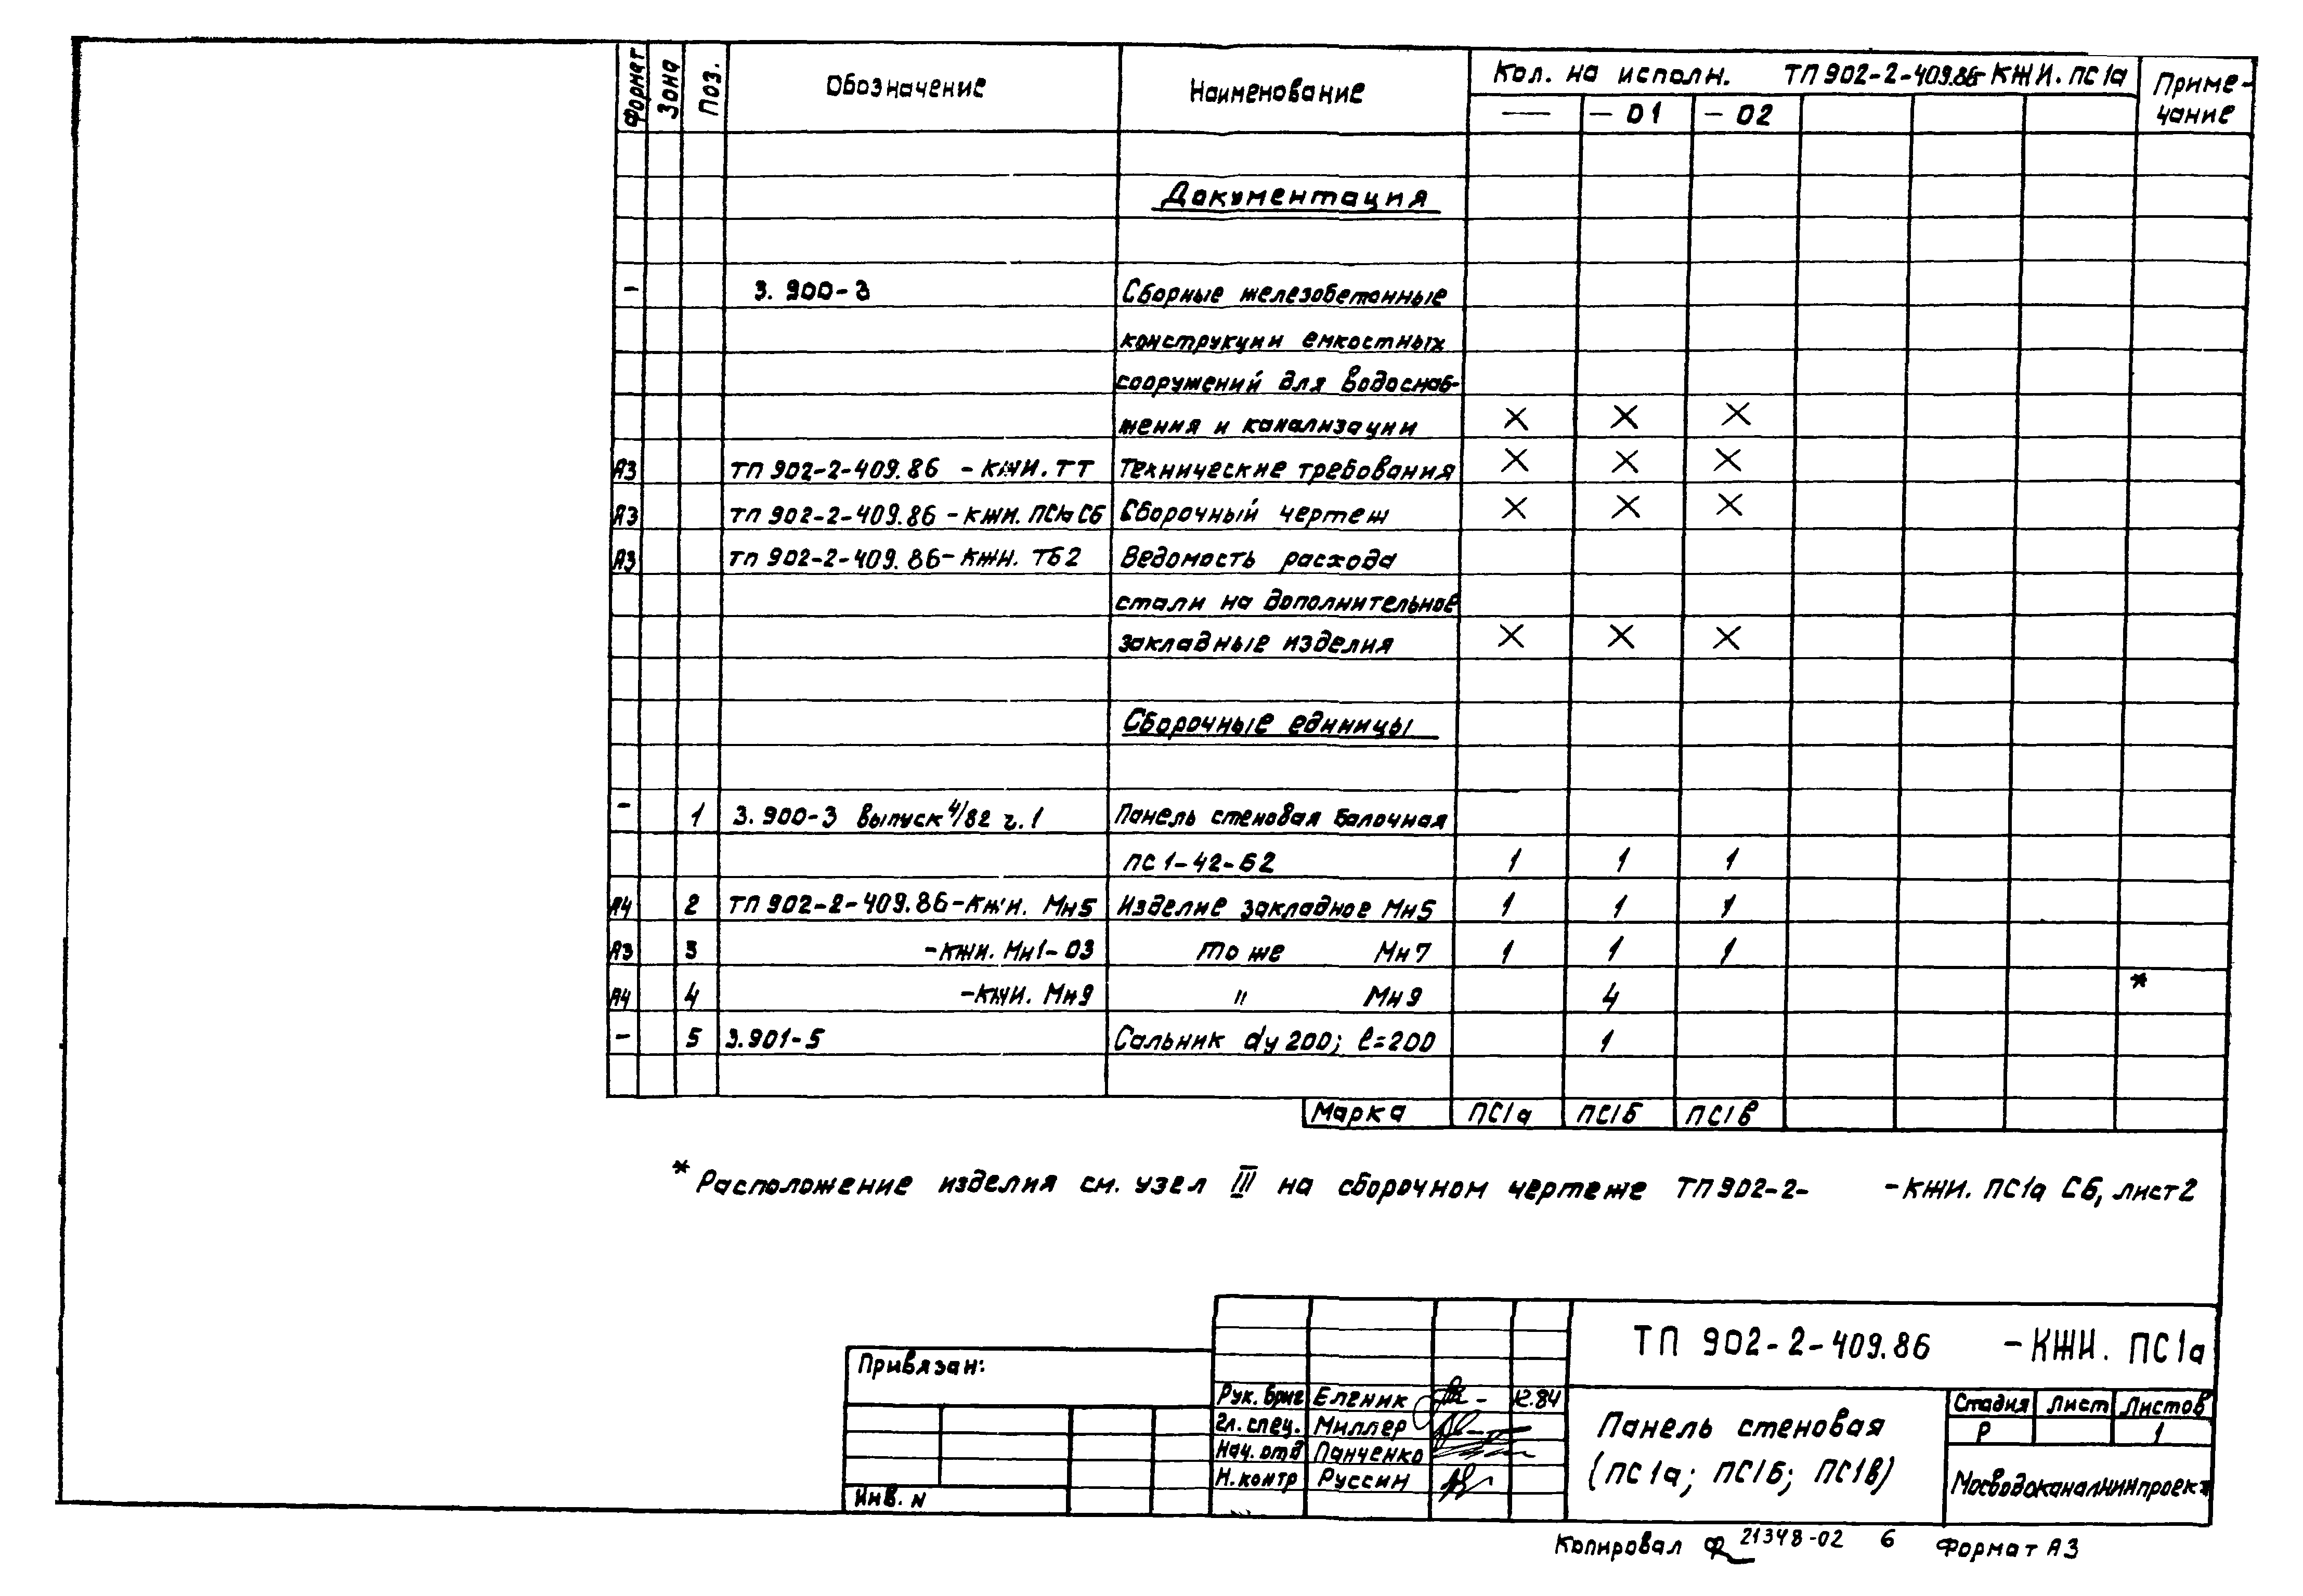 Формат Зона Поз. Обозначение Наименование Кол. на исполн. ТП 902-2-409.86-КЖИ. ПС1а Приме-
— -01 -02 чание
Документация
- 3.900-3 Сборные железобетонные
конструкции емкостных
сооружений для водоснаб-
жения и канализации × × ×
А3 ТП 902-2-409.86 -КЖИ. ТТ Технические требования × × ×
А3 ТП 902-2-409.86 -КЖИ. ПС1а СБ Сборочный чертеж × × ×
А3 ТП 902-2-409.86-КЖИ. ТБ2 Ведомость расхода
стали на дополнительное
закладные изделия × × ×
Сборочные единицы
- 1 3.900-3 Выпуск 4/82 ч.1 Панель стеновая балочная
ПС1-42-Б2 1 1 1
А4 2 ТП 902-2-409.86-КЖИ. Мн5 Изделие закладное Мн5 1 1 1
А3 3 -КЖИ. Мн1-03 То же Мн7 1 1 1
А4 4 -КЖИ. Мн9 " Мн9 4 *
- 5 3.901-5 Сальник dу 200; l=200 1
Марка ПС1а ПС1б ПС1в
* Расположение изделия см. узел III на сборочном чертеже ТП 902-2- -КЖИ. ПС1а СБ, лист 2
ТП 902-2-409.86 -КЖИ. ПС1а
Привязан:
Рук. бриг Еленик 12.84
Гл. спец. Миллер
Нач. отд Панченко
Н. контр Руссин
Инв. N
Панель стеновая
(ПС1а; ПС1б; ПС1в)
Стадия Лист Листов
Р 1
Мосводоканалниипроект
Копировал 21348-02 6 Формат А3